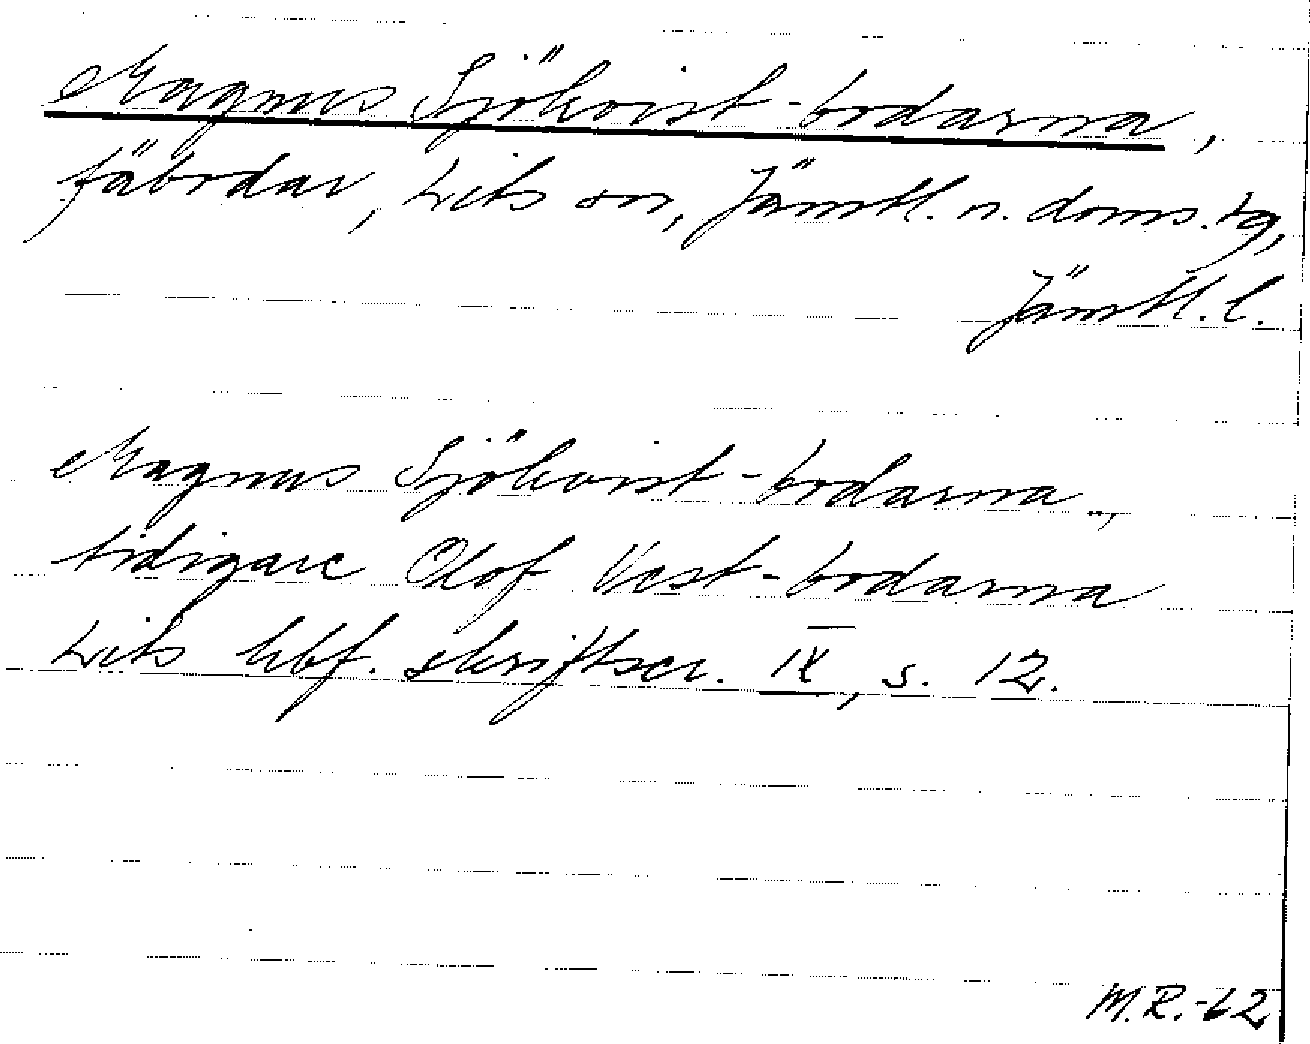 Magnus Sjökvist-bodarna,
fäbodar, Lits sn, Jämtl. n. doms. tg,
Jämtl. l.
Magnus Sjökvist-bodarna,
tidigare Olof Väst-bodarna
Lits hbf. skriftser. IX, s. 12.
M.R.-62